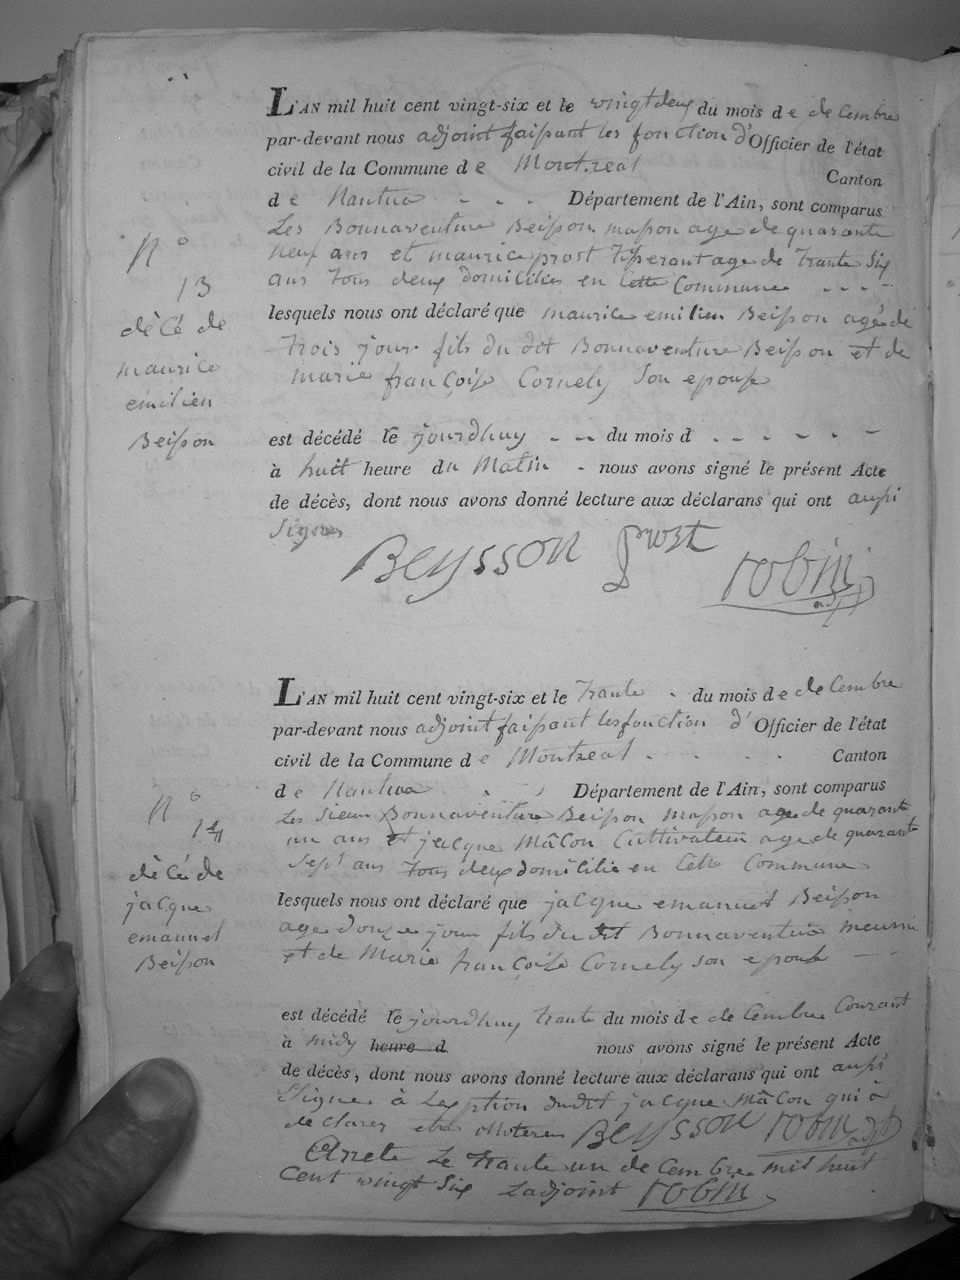 L'AN mil huit cent vingt-six et le vingt deux du mois de de Cembre
par-devant nous adjoint faisant les fonction d'Officier de l'état
civil de la Commune de Montreal Canton
de Nantua - - - Département de l'Ain, sont comparus
Les Bonnaventure Beisson masson age de quarante
neuf ans et maurice prost Tisserant age de Trante Six
ans Tous deux domicilies en Cette Commune - - - -
N° 13
lesquels nous ont déclaré que maurice emilien Beisson agé de
Trois jour fils du dit Bonnaventure Beisson et de
marie françoise Cornely Son epouse
décé de
maurice
emilien
Beisson
est décédé le jourdhuy - - du mois d - - - - - -
à huit heure du Matin - nous avons signé le présent Acte
de décès, dont nous avons donné lecture aux déclarans qui ont aussi
Signes
Beysson prost robin adjt
L'AN mil huit cent vingt-six et le Trante - du mois de de Cembre
par-devant nous adjoint faisant les fonction d'Officier de l'état
civil de la Commune de Montreal - - - - Canton
de Nantua - - Département de l'Ain, sont comparus
Les Sieur Bonnaventure Beisson masson age de quarante
un ans et jacque Mâcon Cultivateur age de quarante
Sept ans Tous deux domicilie en Cette Commune
N° 14
décé de
jacque
emanuel
Beisson
lesquels nous ont déclaré que jacque emanuel Beisson
age douze jour fils du dit Bonnaventure
et de Marie françoise Cornely son epouse - -
est décédé le jourdhuy trante du mois de de Cembre Courant
à midy heure d nous avons signé le présent Acte
de décès, dont nous avons donné lecture aux déclarans qui ont aussi
Signe à Lexption dudit jacque Mâcon qui a
de clarer Beysson robin adjt
Arrete Le Trante un de Cembre mil huit
Cent vingt Six Ladjoint robin